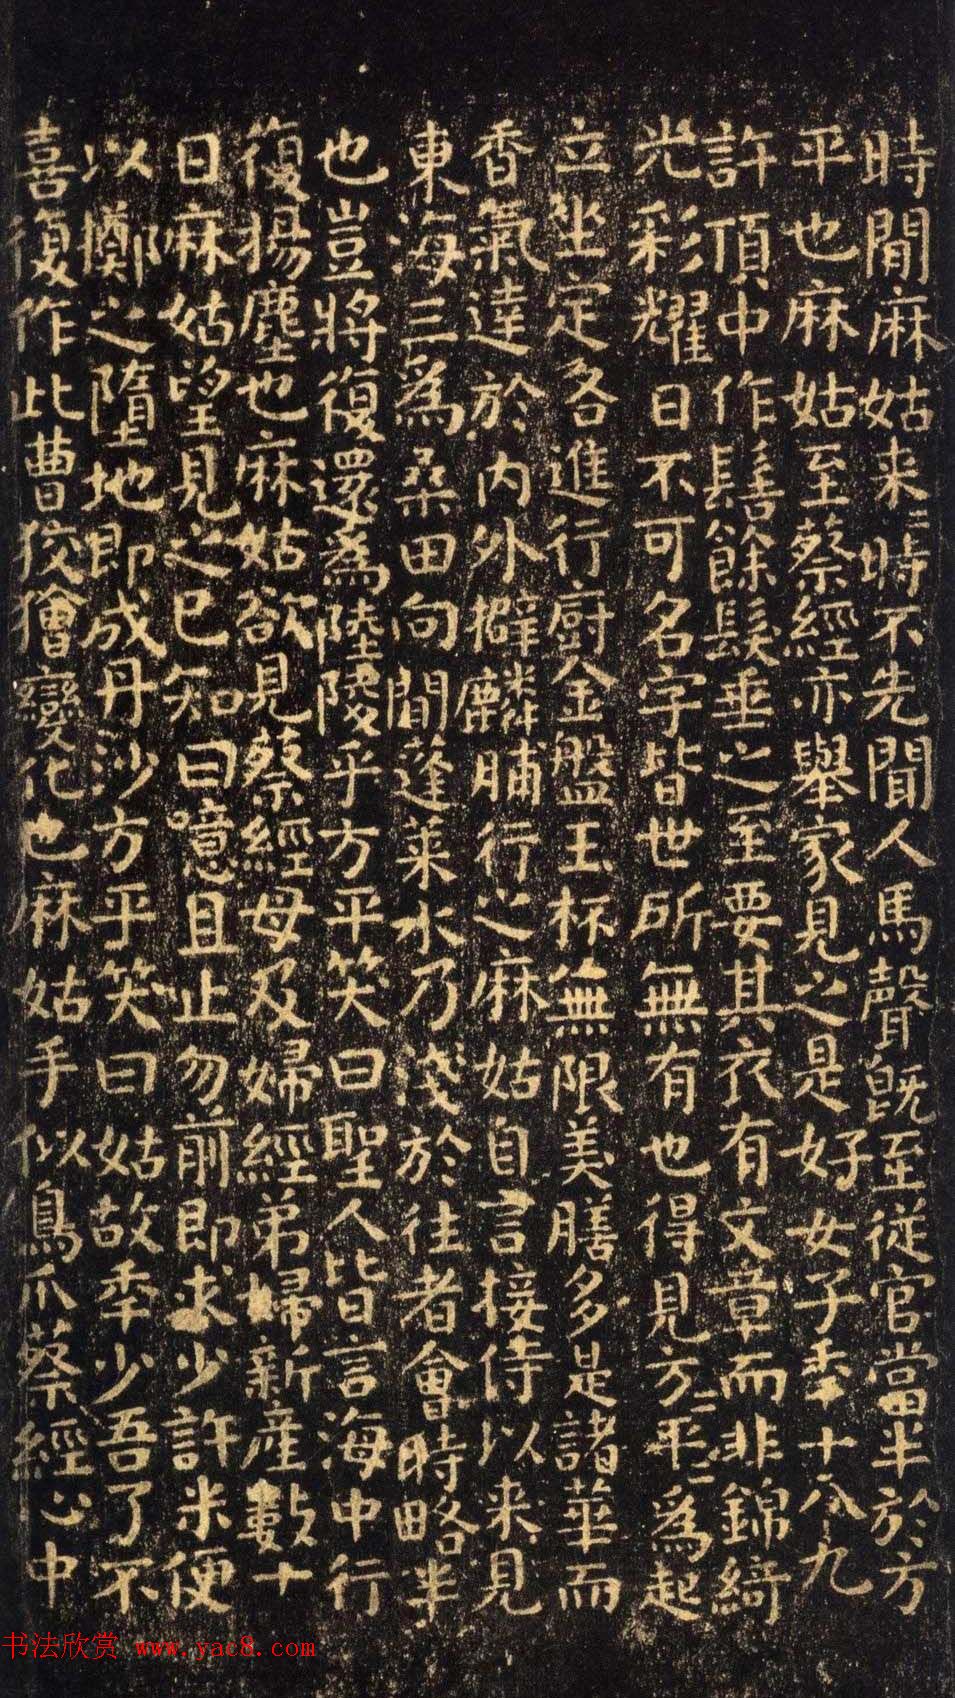 時間麻姑来〻時不先聞人馬聲既至從官當半於方
平也麻姑至蔡經亦舉家見之是好女子年十八九
許頂中作髻餘髮垂之至要其衣有文章而非錦綺
光彩耀日不可名字皆世所無有也得見方〻平〻為起
立坐定各進行廚金盤玉杯無限美膳多是諸華而
香氣達於內外擗麟脯行之麻姑自言接侍以来見
東海三為桑田向間蓬莱水乃淺於往者會時略半
也豈將復還為陸陵乎方平笑曰聖人皆言海中行
復揚塵也麻姑欲見蔡經母及婦經弟婦新產數十
日麻姑望見之已知曰噫且止勿前即求少許米便
以擲之墮地即成丹沙方平笑曰姑故年少吾了不
喜復作此曹狡獪變化也麻姑手似鳥爪蔡經心中
书法欣赏 www.yac8.com